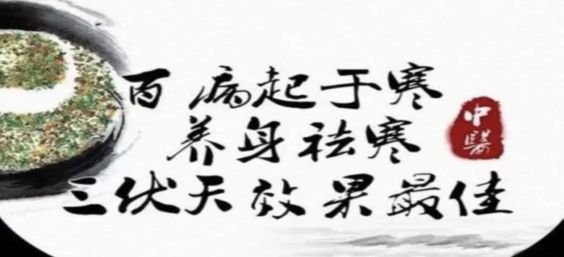 百病起于寒
养身祛寒
中醫
三伏天效果最佳